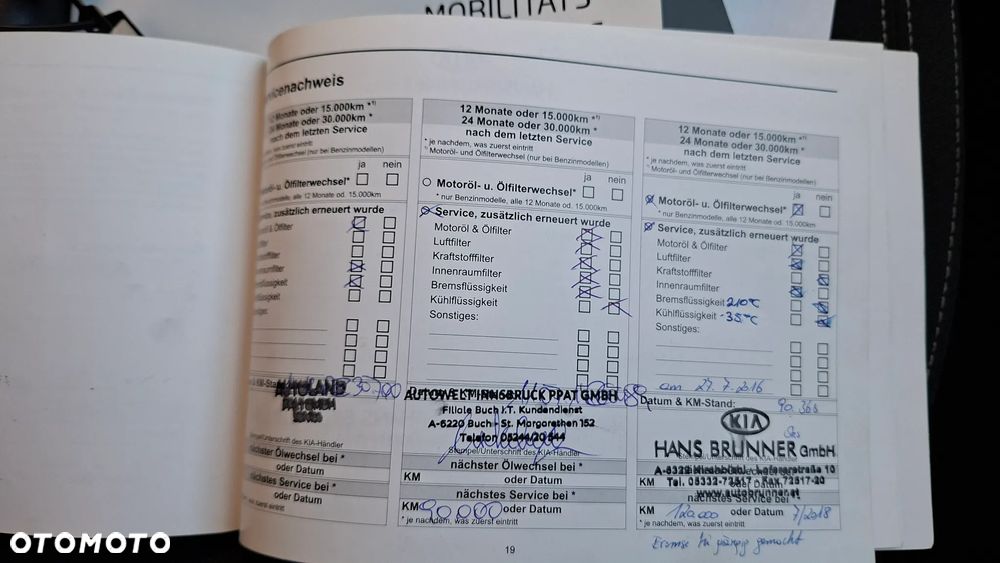 MOBILITÄTS
vicenachweis
12 Monate oder 15.000km *¹⁾
24 Monate oder 30.000km *
nach dem letzten Service
zuerst eintritt
Ölfilterwechsel (nur bei Benzinmodellen)
ja nein
Motoröl- u. Ölfilterwechsel*
alle 12 Monate od. 15.000km
Service, zusätzlich erneuert wurde
& Ölfilter
& KM-Stand: 30700
AUTOLAND
Stempel/Unterschrift des KIA-Händler
nächster Ölwechsel bei *
oder Datum
nächstes Service bei *
oder Datum
was zuerst eintritt
12 Monate oder 15.000km *¹⁾
24 Monate oder 30.000km *
nach dem letzten Service
* je nachdem, was zuerst eintritt
¹⁾ Motoröl- und Ölfilterwechsel (nur bei Benzinmodellen)
ja nein
Motoröl- u. Ölfilterwechsel*
* nur Benzinmodelle, alle 12 Monate od. 15.000km
Service, zusätzlich erneuert wurde
Motoröl & Ölfilter
Luftfilter
Kraftstofffilter
Innenraumfilter
Bremsflüssigkeit
Kühlflüssigkeit
Sonstiges:
AUTOWELT INNSBRUCK PPAT GMBH
Filiale Buch i.T. Kundendienst
A-6220 Buch - St. Margarethen 152
Telefon 05244/20 544
Stempel/Unterschrift des KIA-Händler
nächster Ölwechsel bei *
KM oder Datum
nächstes Service bei *
KM 90,000 oder Datum
* je nachdem, was zuerst eintritt
12 Monate oder 15.000km *¹⁾
24 Monate oder 30.000km *
nach dem letzten Service
* je nachdem, was zuerst eintritt
¹⁾ Motoröl- und Ölfilterwechsel (nur bei Benzinmodellen)
ja nein
Motoröl- u. Ölfilterwechsel*
* nur Benzinmodelle, alle 12 Monate od. 15.000km
Service, zusätzlich erneuert wurde
Motoröl & Ölfilter
Luftfilter
Kraftstofffilter
Innenraumfilter
Bremsflüssigkeit 210°C
Kühlflüssigkeit -35°C
Sonstiges:
am 27.7.2016
Datum & KM-Stand: 90.368
KIA
HANS BRUNNER GmbH
Stempel/Unterschrift des KIA-Händler
A-6322 Kirchbichl · Lofererstraße 10
Tel. 05332-72517 · Fax 72517-20
KM oder Datum
www.autobrunner.at
nächstes Service bei *
KM 120.000 oder Datum 7/2018
* je nachdem, was zuerst eintritt
Bremse gemacht
19
OTOMOTO